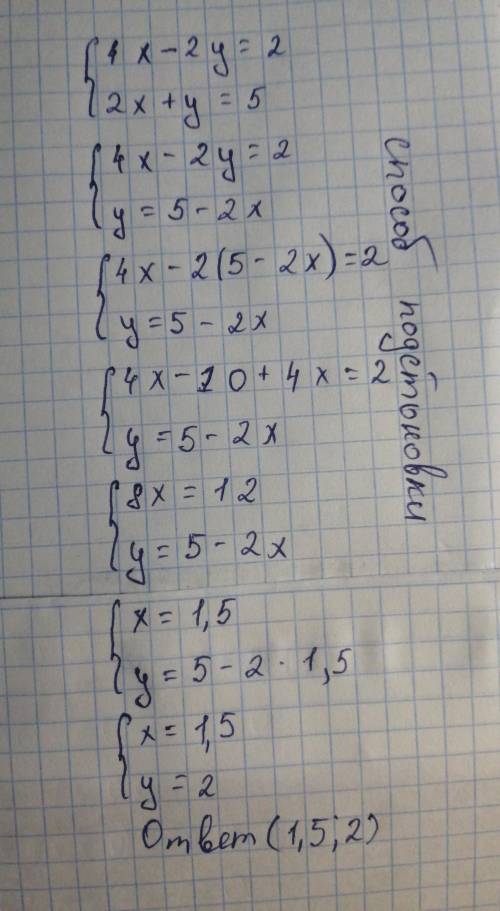 4x - 2y = 2
2x + y = 5
4x - 2y = 2
y = 5 - 2x
4x - 2(5 - 2x) = 2
y = 5 - 2x
4x - 10 + 4x = 2
y = 5 - 2x
8x = 12
y = 5 - 2x
x = 1,5
y = 5 - 2 · 1,5
x = 1,5
y = 2
Ответ (1,5; 2)
способ подстановки